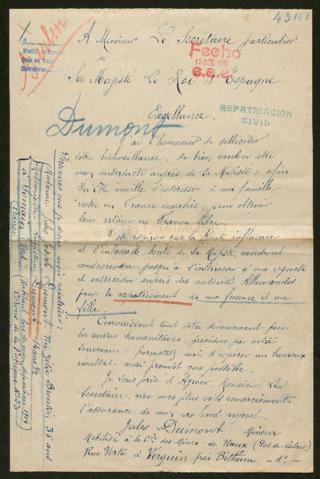 43101
A Monsieur Le Secrétaire particulier
de
Sa Majesté Le Roi d'Espagne
Fecho
e.a.e.
REPATRIACIÓN
CIVIL
Excellence,
Dumont
J'ai l'honneur de solliciter
votre bienveillance, de bien vouloir être
mon interprète auprès de Sa Majesté; afin
qu'Elle veuille s'intéresser à ma famille,
restée en France envahie, pour obtenir
leur retour en France libre.
J'ose espérer que la haute influence
et l'inlassable bonté de Sa Majesté, voudront
condescendre jusqu'à s'intéresser à ma requête
et intercéder auprès des autorités Allemandes
pour le rapatriement de ma femme et ma
fille
Connaissant tout votre dévouement pour
les œuvres humanitaires présidées par votre
souverain; permettez moi d'espérer un heureux
résultat aussi prompt que possible.
Je vous prie d'agréer Monsieur Le
Secrétaire, avec mes plus vifs remerciements
l'assurance de mon profond respect.
Jules Dumont Mineur
Mobilisé à la Cie des Mines de Nœux (Pas-de-Calais)
Rue Verte à Verquin près Béthune - do -
Personnes que je désire voir rapatrier:
Madame Jules Dumont Née Julie 35 ans
Dumont 14 ans 1/2
à
(Nord)